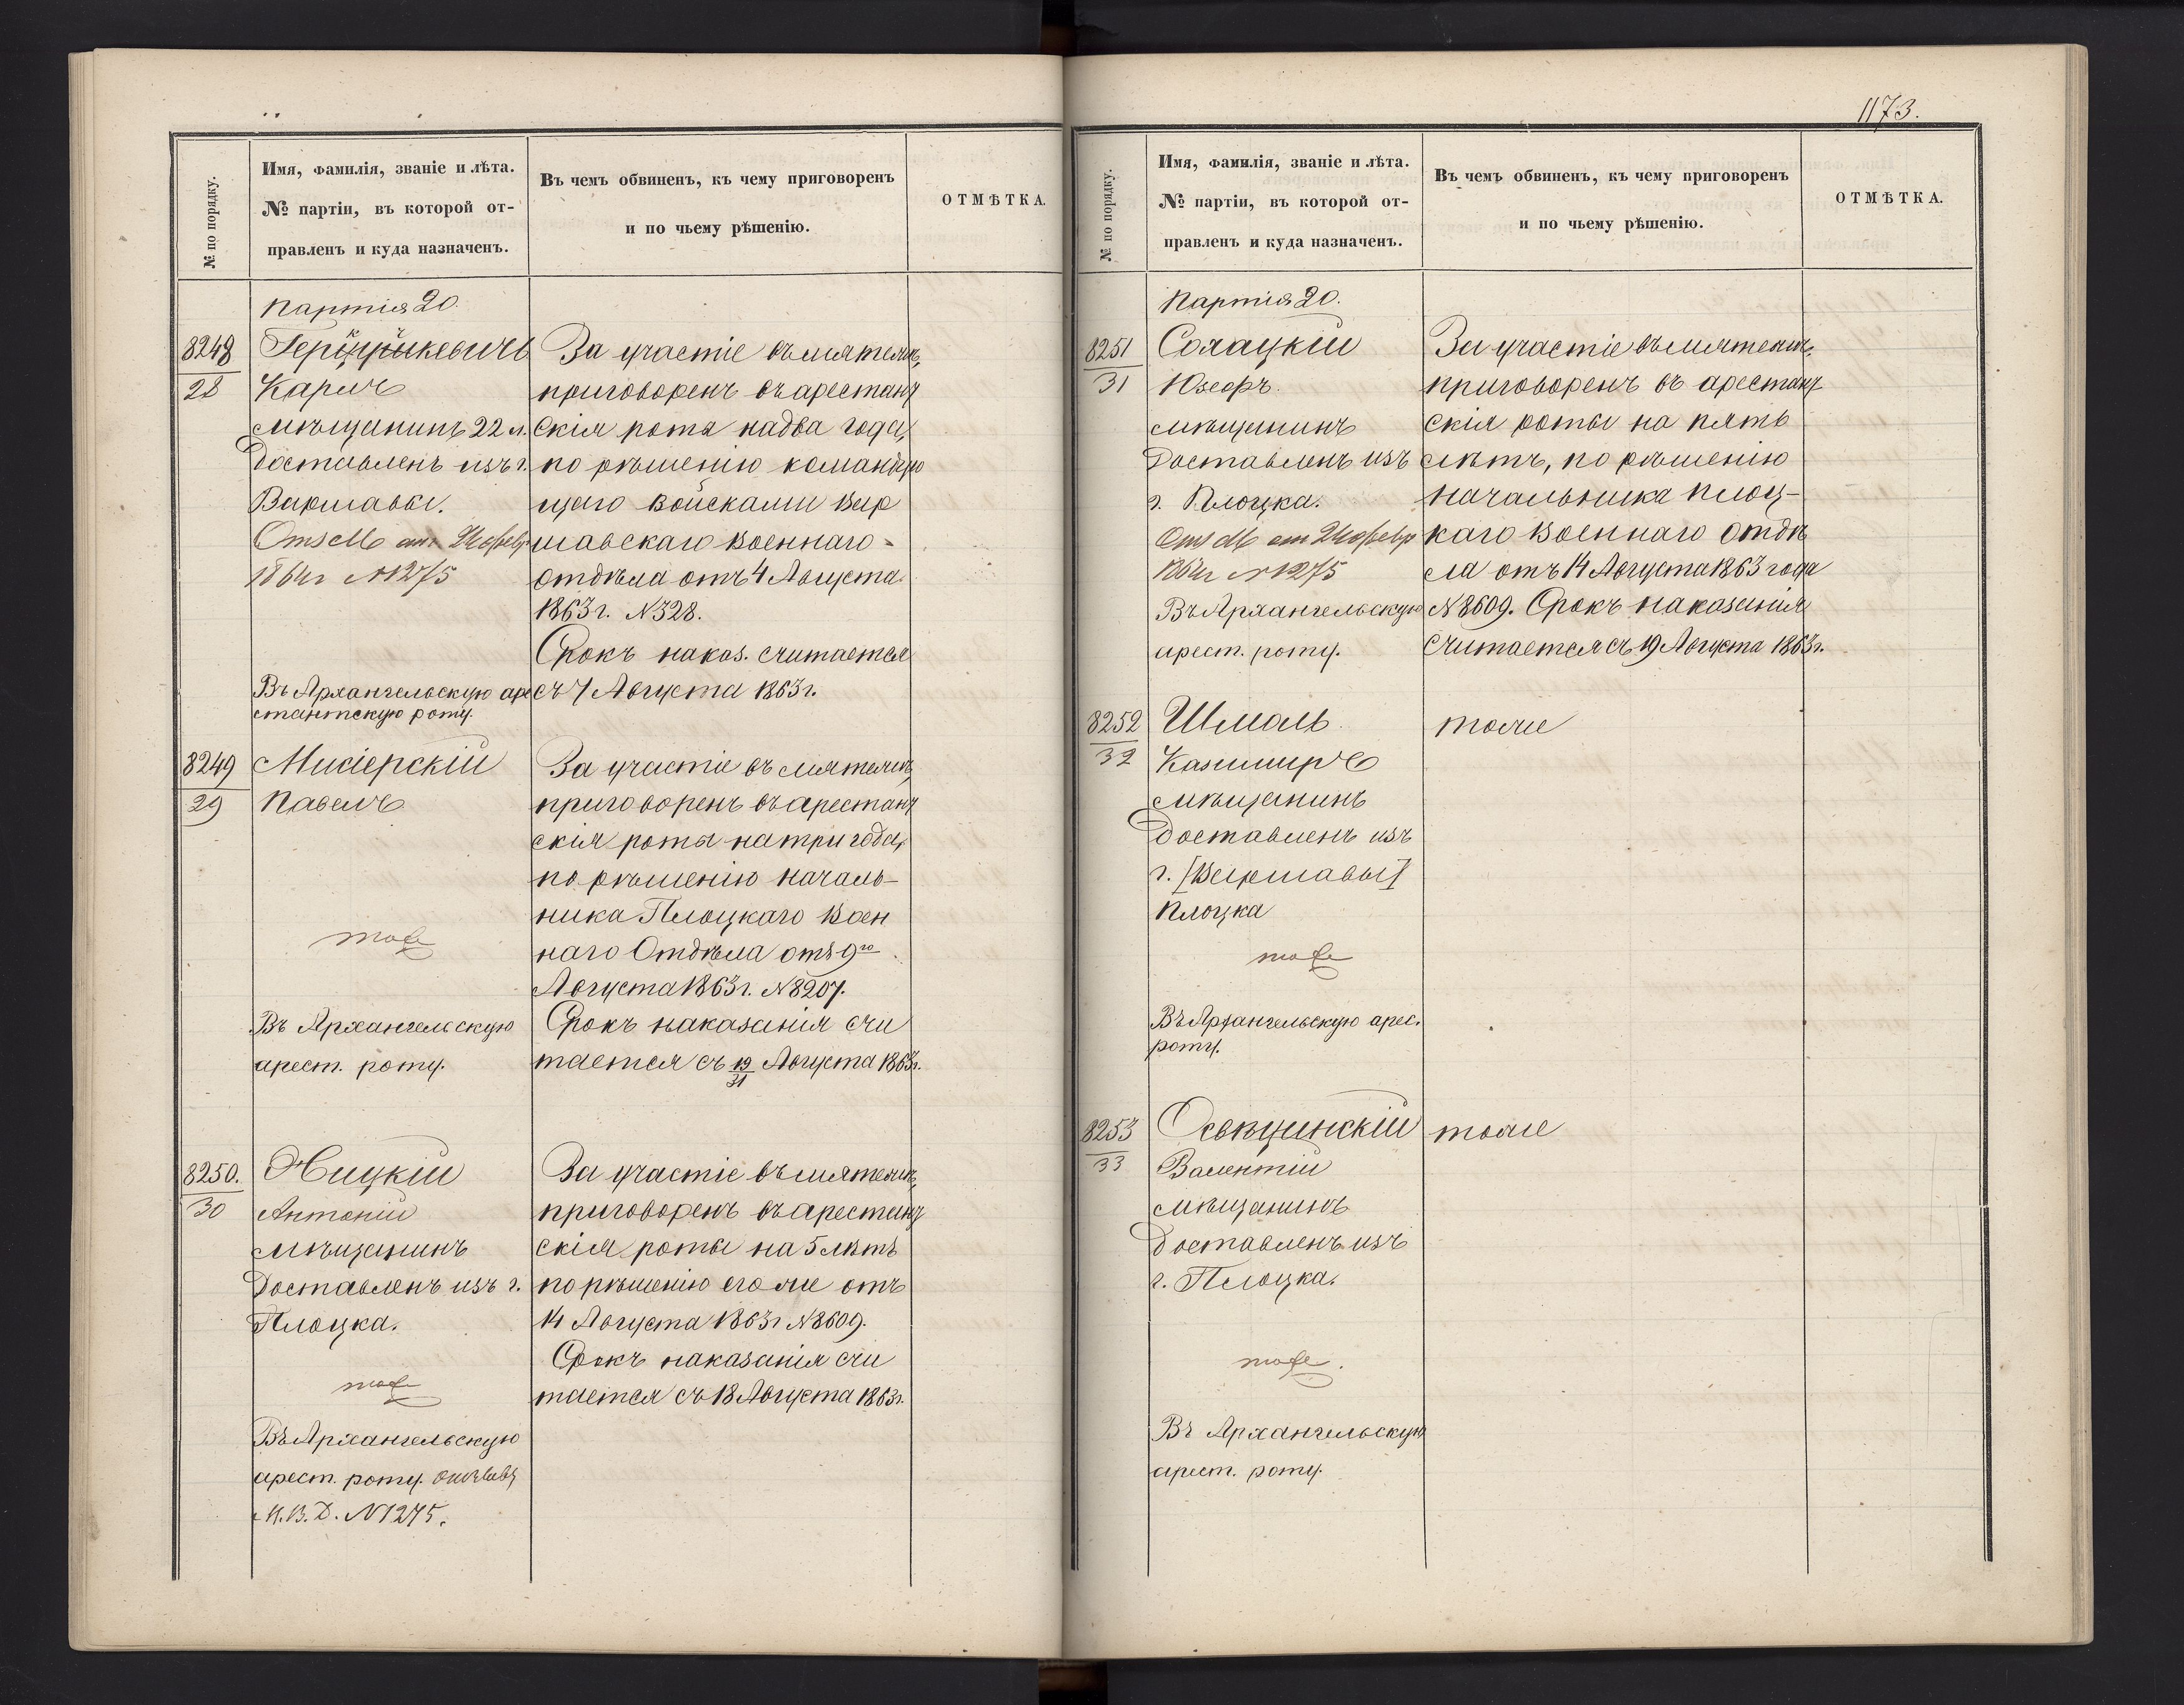 1173.
№ по порядку.
Имя, фамилія, званіе и лѣта.
№ партіи, въ которой от-
правленъ и куда назначенъ.
Въ чемъ обвиненъ, къ чему приговоренъ
и по чьему рѣшенію.
ОТМѢТКА.
Партія 20.
8248
28
Кароль
мѣщанинъ 22 л.
Доставленъ изъ г.
Варшавы.
1864 г №1275
Въ Архангельскую аре
стантскую роту.
За участіе въ мятежѣ,
приговоренъ въ арестант
скія роты на два года,
по рѣшенію командую
щаго войсками Вар
шавскаго Военнаго
отдѣла отъ 4 Августа
1863 г. №328.
Срокъ наказ. считается
съ 7 Августа 1863 г.
8249
29
Мисіерскій
Павелъ
тоже
Въ Архангельскую
арест. роту.
За участіе въ мятежѣ,
приговоренъ въ арестант
скія роты на три года,
по рѣшенію началь-
ника Плоцкаго Воен
наго Отдѣла отъ 9го
Августа 1863 г. №8207.
Срокъ наказанія счи
тается съ 19/31 Августа 1863 г.
8250.
30
Антоній
мѣщанинъ
Доставленъ изъ г.
Плоцка.
тоже
Въ Архангельскую
арест. роту.
М.В.Д. №1275.
За участіе въ мятежѣ,
приговоренъ въ арестант
скія роты на 5 лѣтъ
по рѣшенію его же отъ
14 Августа 1863 г №8609.
Срокъ наказанія счи
тается съ 18 Августа 1863 г.
№ по порядку.
Имя, фамилія, званіе и лѣта.
№ партіи, въ которой от-
правленъ и куда назначенъ.
Въ чемъ обвиненъ, къ чему приговоренъ
и по чьему рѣшенію.
ОТМѢТКА.
Партія 20.
8251
31
Солацкій
Юзефъ.
мѣщанинъ
Доставленъ изъ
г. Плоцка.
1864 г №1275
Въ Архангельскую
арест. роту.
За участіе въ мятежѣ,
приговоренъ въ арестант
скія роты на пять
лѣтъ, по рѣшенію
начальника Плоц-
каго Военнаго Отдѣ
ла отъ 14 Августа 1863 года
№8609. Срокъ наказанія
считается съ 19 Августа 1863 г.
8252
32
Шмоль
Казимиръ
мѣщанинъ
Доставленъ изъ
г. [Варшавы]
Плоцка
тоже
Въ Архангельскую арес.
роту.
тоже
8253
33
Освѣцинскій
Валентій
мѣщанинъ
Доставленъ изъ
г. Плоцка.
тоже.
Въ Архангельскую
арест. роту.
тоже